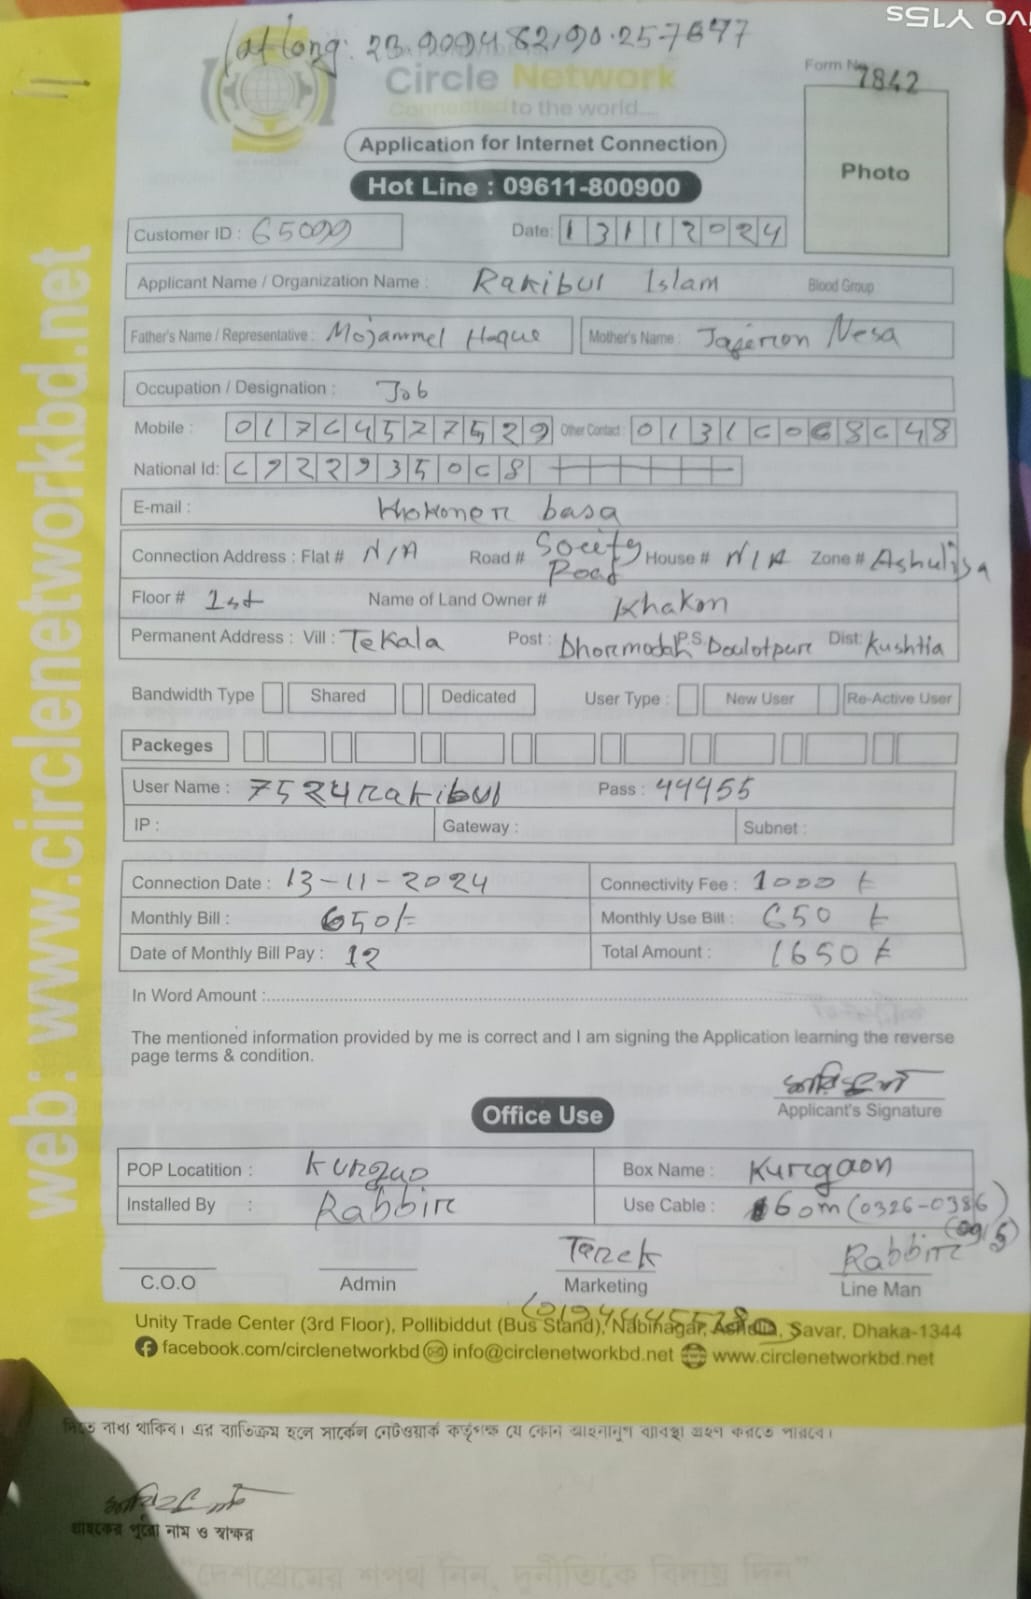 Lat long: 23.909482,90.257847
vivo Y15s
Circle Network
Connected to the world....
Form No 7842
Photo
Application for Internet Connection
Hot Line : 09611-800900
Customer ID : 65099
Date: 13112024
Applicant Name / Organization Name : Rakibul Islam Blood Group
Father's Name / Representative : Mojammel Haque Mother's Name : Nesa
Occupation / Designation : Job
Mobile : 01764577529 Other Contact : 01316068648
National Id: 6922935068
E-mail : Khokoner basa
Connection Address : Flat # N/A Road # Socity Road House # N/A Zone # Ashuliya
Floor # 1st Name of Land Owner # Khakon
Permanent Address : Vill : Tekala Post : Dhormodah P.S. Doulotpur Dist: Kushtia
Bandwidth Type Shared Dedicated User Type : New User Re-Active User
Packeges
User Name : 7524rakibul Pass : 44455
IP : Gateway : Subnet :
Connection Date : 13-11-2024 Connectivity Fee : 1000 t
Monthly Bill : 650/- Monthly Use Bill : 650 t
Date of Monthly Bill Pay : 12 Total Amount : 1650 t
In Word Amount :
The mentioned information provided by me is correct and I am signing the Application learning the reverse
page terms & condition.
Applicant's Signature
Office Use
POP Locatition : Box Name : Kurgaon
Installed By : Rabbir Use Cable : 60m (0326-0386)
Tarek Rabbir
C.O.O Admin Marketing Line Man
Unity Trade Center (3rd Floor), Pollibiddut (Bus Stand), Nabinagar, Ashulia, Savar, Dhaka-1344
facebook.com/circlenetworkbd info@circlenetworkbd.net www.circlenetworkbd.net
web: www.circlenetworkbd.net
দিতে বাধ্য থাকিব। এর ব্যতিক্রম হলে সার্কেল নেটওয়ার্ক কর্তৃপক্ষ যে কোন আইনানুগ ব্যবস্থা গ্রহণ করতে পারবে।
গ্রাহকের পুরো নাম ও স্বাক্ষর
"দেশপ্রেমের শপথ নিন, দুর্নীতিকে বিদায় দিন"